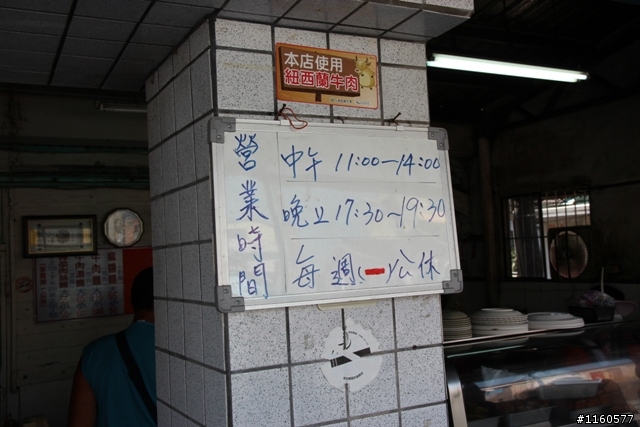 本店使用
紐西蘭牛肉
營業時間
中午 11:00—14:00
晚上 17:30~19:30
每週(一)公休
#1160577